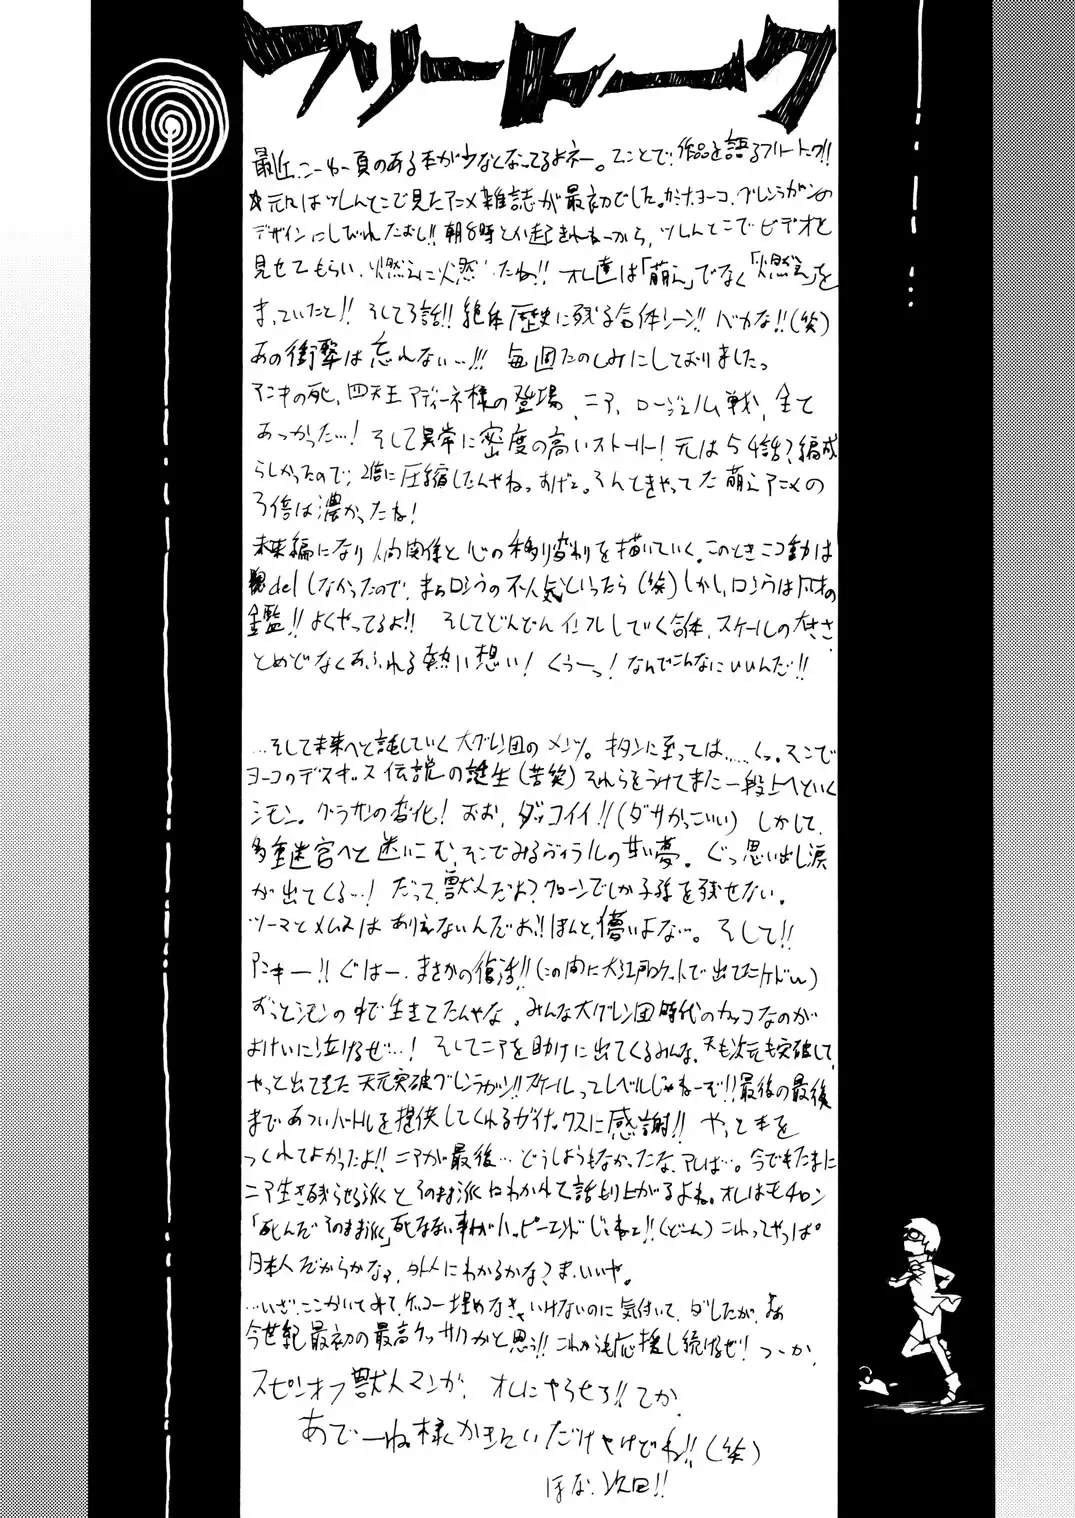 フリートーク
最近、こーゆー頁のある本が少なくなってるよネー。てことで、作品を語るフリートーク!!
元々はツレんとこで見たアニメ雑誌が最初でした。カミナ、ヨーコ、グレンラガンの
デザインにしびれたむし!! 朝8時とか起きれねーから、ツレんとこでビデオを
見せてもらい、"燃えに燃え"たね!! オレ達は「萌え」でなく「燃え」を
まっていたと!! そして3話!! 絶体歴史に残る合体シーン!! バカな!!(笑)
あの衝撃は忘れない…!!! 毎回たのしみにしておりましたっ
アニキの死、四天王アディーネ様の登場、ニア、ロージェノム戦、全て
あつかった…! そして異常に密度の高いストーリー! 元は54話?編成
らしかったので、2倍に圧縮したんやねっ すげェ。そんときやってた萌えアニメの
3倍は濃かったね!
未来編になり人間関係と心の移り変わりを描いていく。このときニコ動は
delしなかったので、まぁロシウの不人気といったら(笑)しかし、ロシウは
鑑!! よくやってるよ!! そしてどんどんインフレしていく合体、スケールの大きさ、
とめどなくあふれる熱い想い! くぅーっ! なんでこんなにいいんだ!!
…そして未来へと託していく大グレン団のメンツ。キタンに至っては…..くっ。そこで
ヨーコのデスキッス伝説の誕生(苦笑)それらをうけてまた一段上へといく
シモン。グラサンの変化! おお、ダッコイイ!!(ダサかっこいい) しかして、
多重迷宮へと迷いこむ、そこでみるヴィラルの甘い夢。ぐっ思い出し涙
が出てくる…! だって、獣人だよ? クローンでしか子孫を残せない。
ツーマとメムスはありえないんだぉ!! ほんと、儚いよな…。 そして!!
アニキー!! ぐはー、まさかの復活!!(この前に大江戸ロケットで出てたケドw)
ずっとシモンの中で生きてたんやな、みんな大グレン団時代のカッコなのが
よけいに泣けるぜ…! そしてニアを助けに出てくるみんな、天も次元も突破して、
やっと出てきた天元突破グレンラガン!! スケールってレベルじゃねーぞ!! 最後の最後
まであついバトルを提供してくれるガイナックスに感謝!! やっと本を
つくれてよかったよ!! ニアが最後… どうしようもなかったな、アレは…。今でもたまに
ニア生き残らせる派とそのまま派にわかれて話もり上がるよね。オレはモチロン
「死んだそのまま派」死なない事がハッピーエンドじゃねェ!!(どーん)これってやっぱ
日本人だからかな?外人にわかるかな? ま、いいや。
…いざ、ここかいてみて、ケッコー埋めなきゃいけないのに気付いて、ダレたが、まぁ
今世紀最初の最高ケッサクかと思う!! これからも応援し続けるぜ! つーか、
スピンオフ獣人マンガ、オレにやらせろ!! てか、
あでーね様かきたいだけやけどね!!(笑)
ほな、次回!!